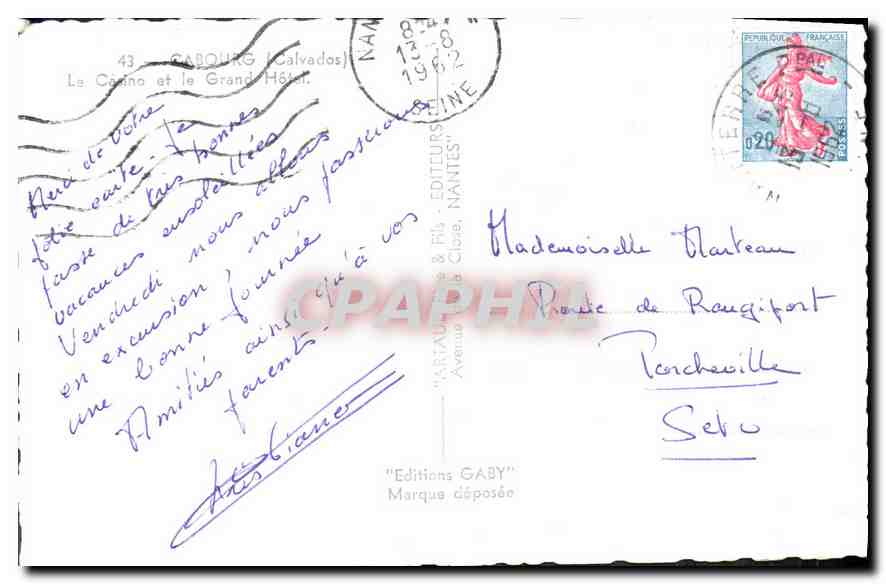 43 - CABOURG (Calvados)
Le Casino et le Grand Hôtel.
NAN
8H4
13-8
1962
SEINE
REPUBLIQUE FRANÇAISE
0,20
POSTES
Merci de votre
jolie carte. Je
passe de très bonnes
vacances ensoleillées
Vendredi nous allons
en excursion, nous passerons
une bonne journée
Amitiés ainsi qu'à vos
parents.
"ARTAUD & Fils - EDITEURS
Avenue de la Close, NANTES"
CPAPHIL
"Editions GABY"
Marque déposée
Mademoiselle Marteau
Route de Rangiport
Porcheville
S et O